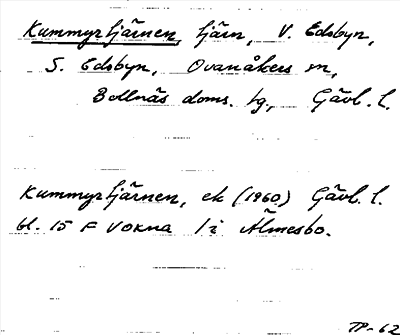 Kummyrtjärnen, tjärn, V. Edsbyn,
S. Edsbyn, Ovanåkers sn,
Bollnäs doms. tg., Gävl. l.
Kummyrtjärnen, ek (1960) Gävl. l.
bl. 15 F Voxna 1 i Älmesbo.
TP-62